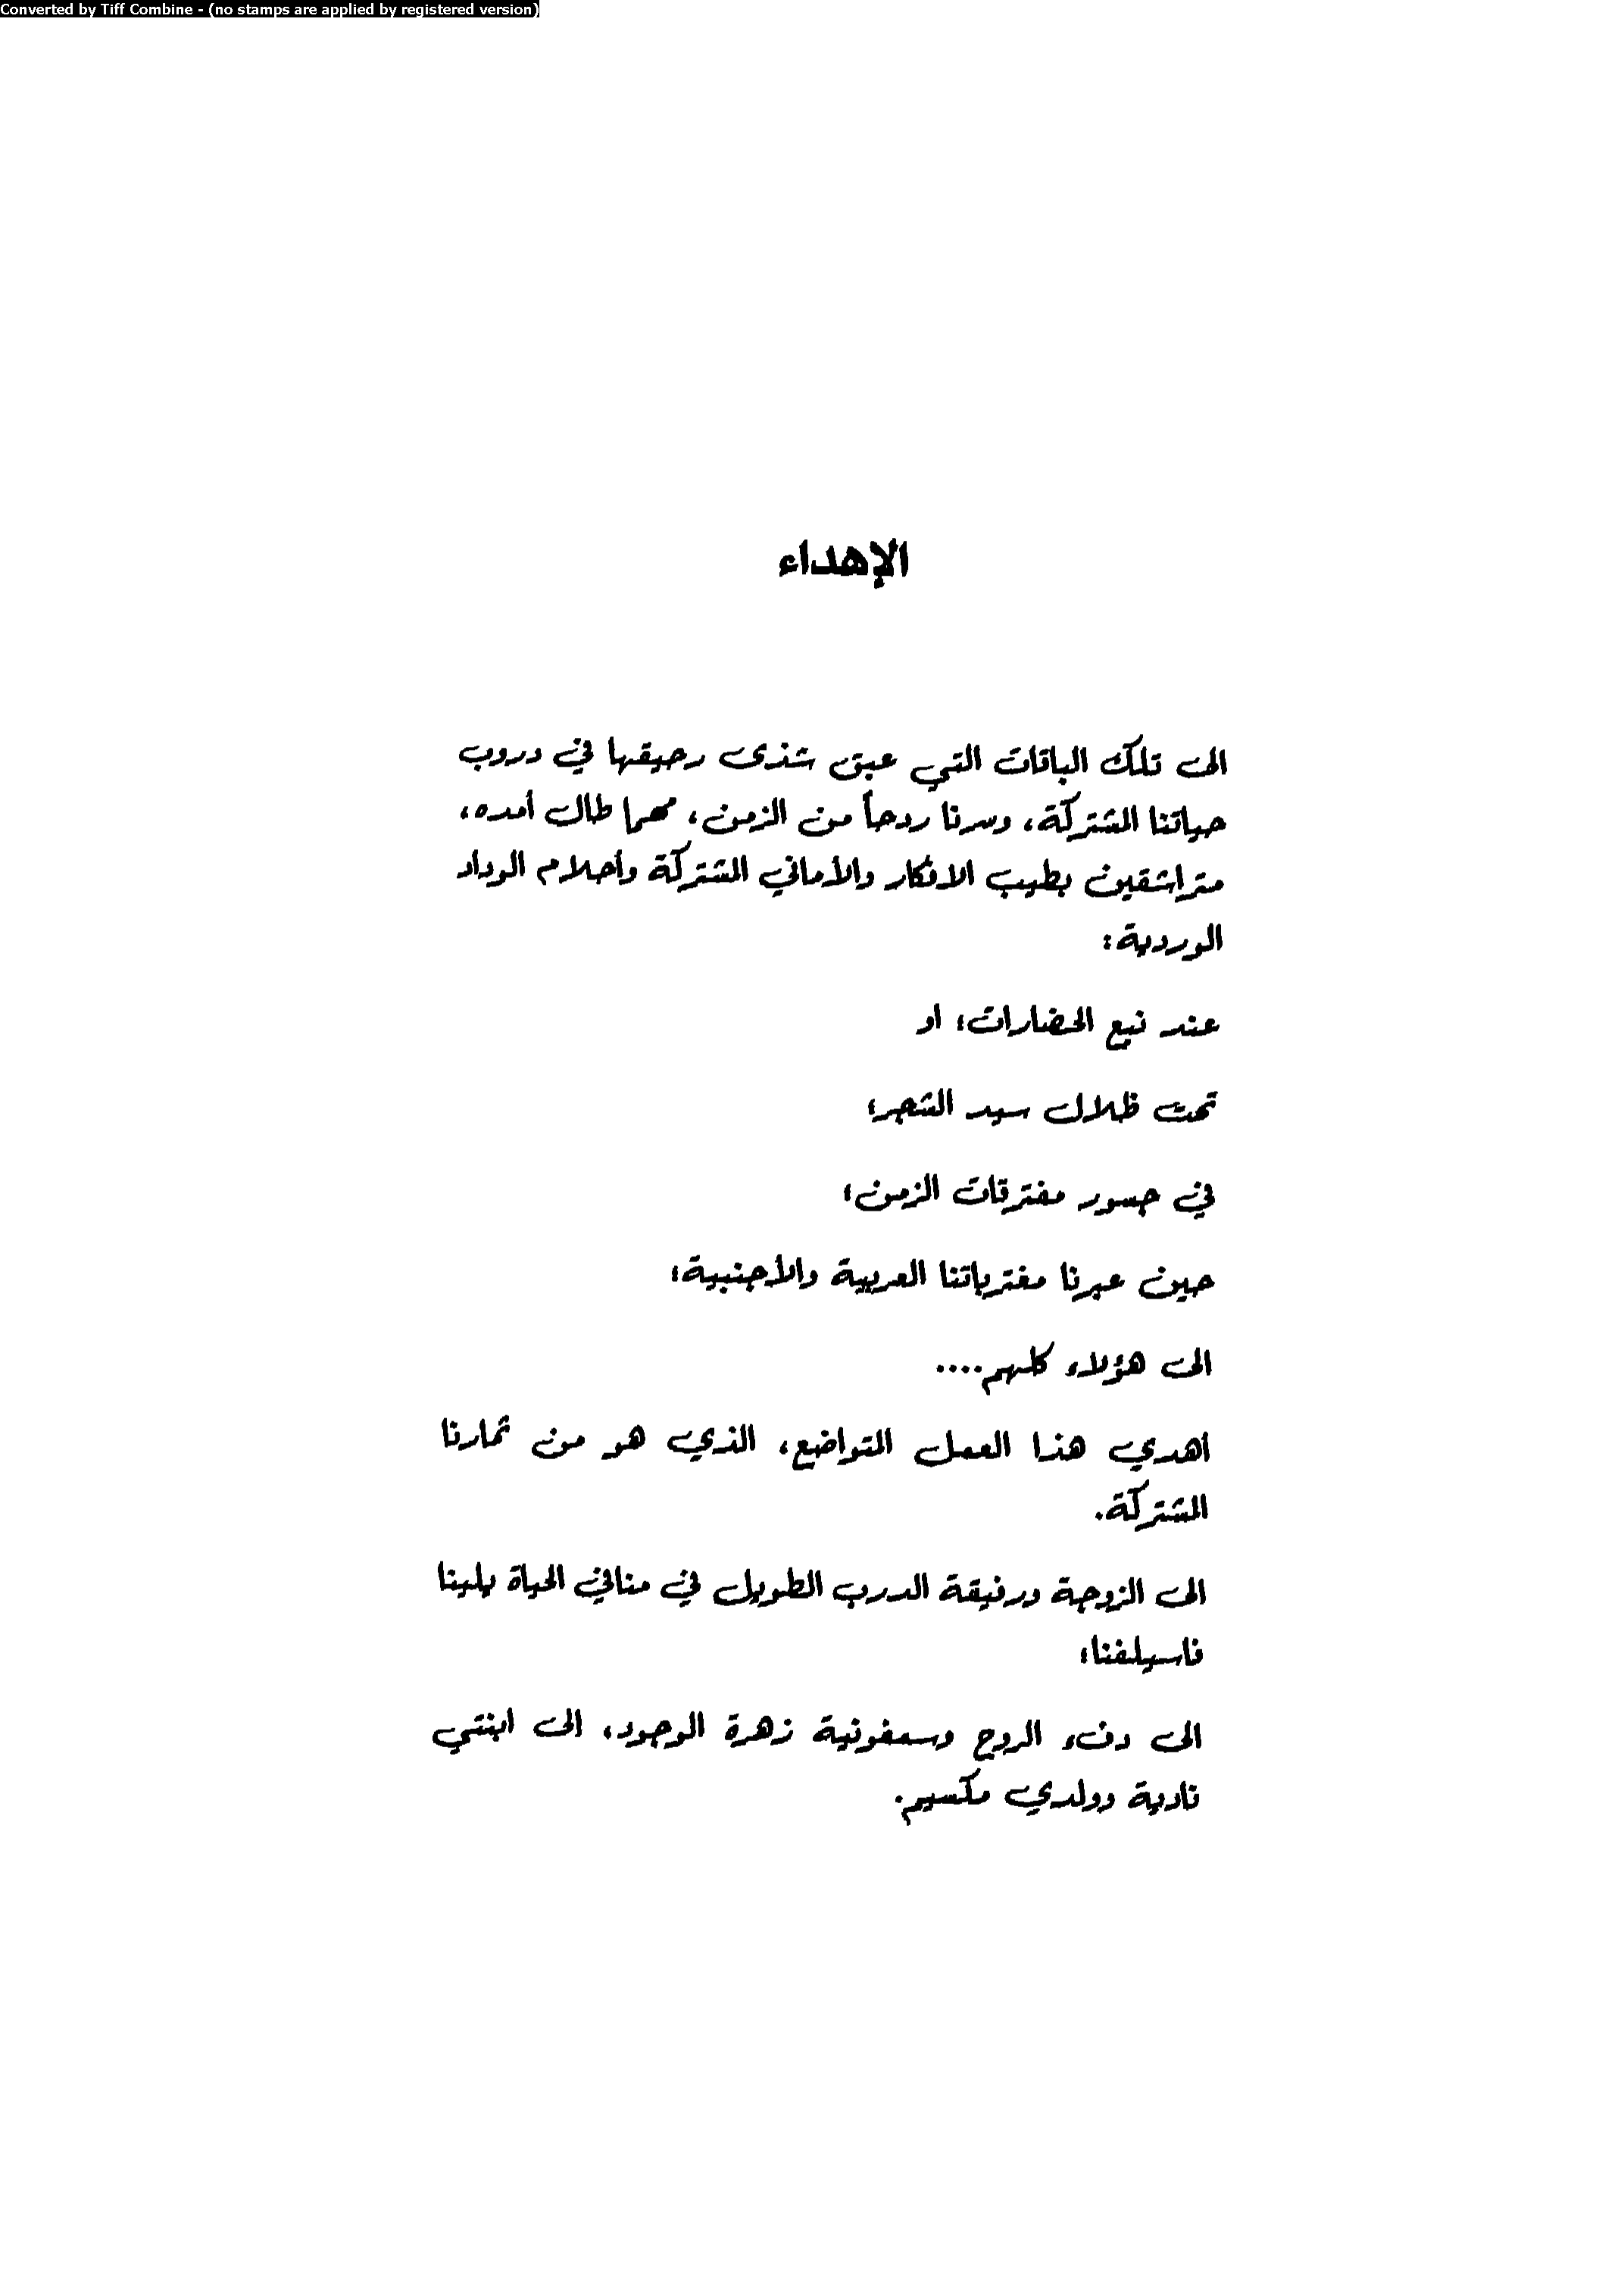 Converted by Tiff Combine - (no stamps are applied by registered version)
الإهداء
الى تلك الباقات التي عبق شذى رحيقها في دروب
حياتنا المشتركة، وسرنا ردحاً من الزمن، مهما طال أمده،
متراشقين بطيب الافكار والأماني المشتركة وأحلام الوداد
الوردية:
عند نبع الحضارات؛ او
تحت ظلال سيد الشجر؛
في جسور مفترقات الزمن؛
حين عبرنا مغترباتنا العربية والأجنبية؛
الى هؤلاء كلهم....
أهدي هذا العمل المتواضع، الذي هو من ثمارنا
المشتركة.
الى الزوجة ورفيقة الدرب الطويل في منافي الحياة يلينا
فاسيلفنا؛
الى دفء الروح وسمفونية زهرة الوجود، الى ابنتي
نادية وولدي مكسيم.